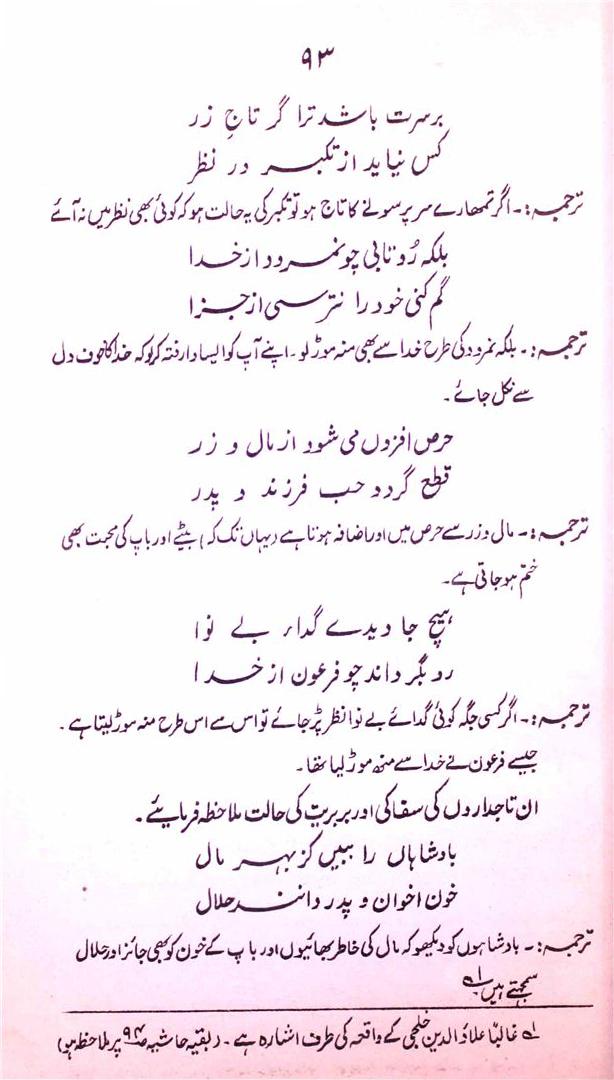 ۹۳
برسرت باشد ترا گر تاجِ زر
کس نیاید از تکبر در نظر
ترجمہ:۔ اگر تمھارے سر پر سونے کا تاج ہو تو تکبر کی یہ حالت ہو کہ کوئی بھی نظر میں نہ آئے
بلکہ رُوتابی چو نمرود از خدا
گم کنی خود را نترسی از جزا
ترجمہ:۔ بلکہ نمرود کی طرح خدا سے بھی منہ موڑ لو۔ اپنے آپ کو ایسا وارفتہ کرلو کہ خدا کا خوف دل
سے نکل جائے۔
حرص افزوں می شود از مال و زر
قطع گردد حب فرزند و پدر
ترجمہ:۔ مال و زر سے حرص میں اور اضافہ ہوتا ہے (یہاں تک کہ) بیٹے اور باپ کی محبت بھی
ختم ہو جاتی ہے۔
ہیچ جا دیدے گداء بے نوا
رو بگرداند چو فرعون از خدا
ترجمہ:۔ اگر کسی جگہ کوئی گدائے بے نوا نظر پڑ جائے تو اس سے اس طرح منہ موڑ لیتا ہے۔
جیسے فرعون نے خدا سے منھ موڑ لیا تھا۔
ان تاجداروں کی سفاکی اور بربریت کی حالت ملاحظہ فرمایئے۔
بادشاہاں را ببیں کز بہر مال
خون اخوان و پدر دانند حلال
ترجمہ:۔ بادشاہوں کو دیکھو کہ مال کی خاطر بھائیوں اور باپ کے خون کو بھی جائز اور حلال
سمجھتے ہیں۔ لہ
لہ غالباً علاؤالدین خلجی کے واقعہ کی طرف اشارہ ہے۔ (بقیہ حاشیہ صـ۹۴ پر ملاحظہ ہو)